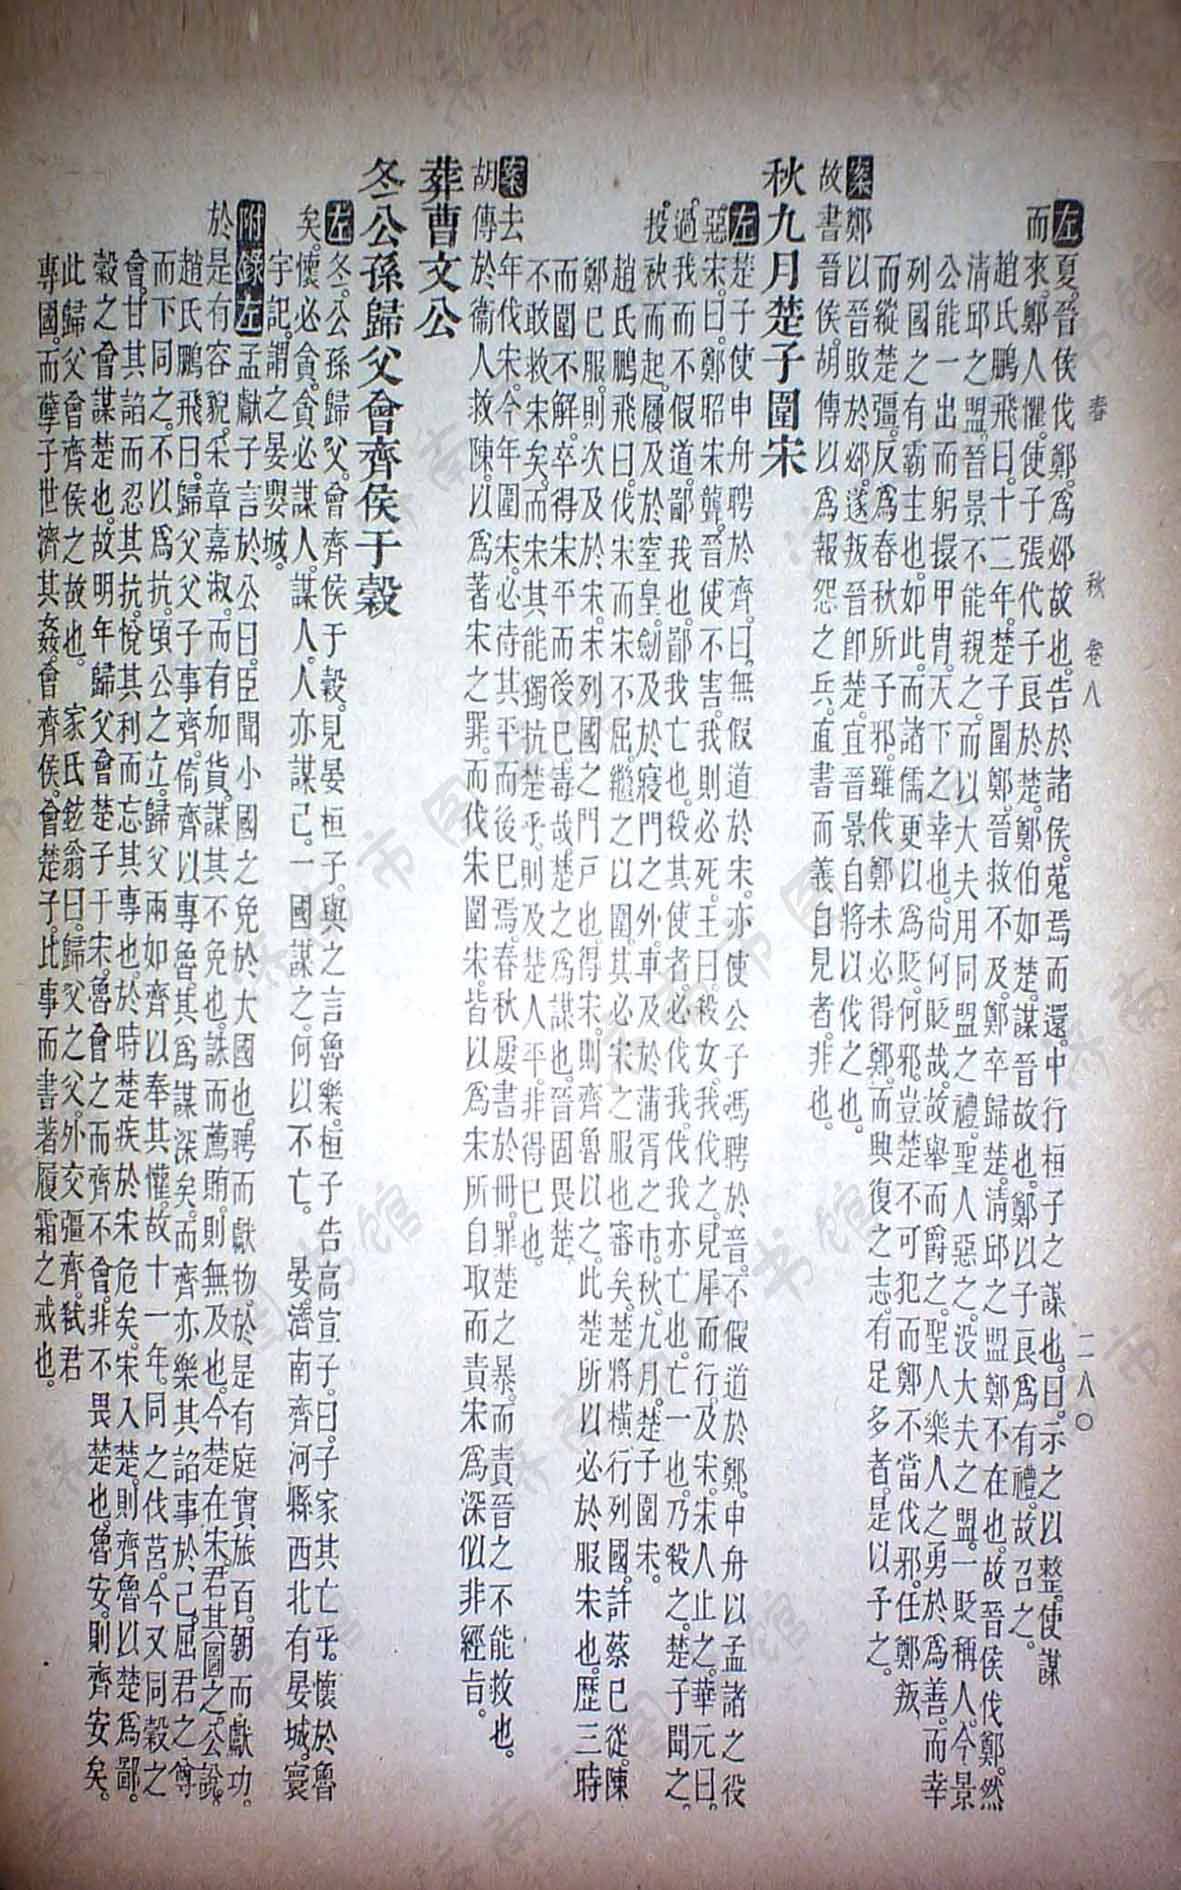 春 秋 卷八 二八〇
左夏。晉侯伐鄭。爲邲故也。告於諸侯。蒐焉而還。中行桓子之謀也。曰。示之以整。使謀
而來。鄭人懼。使子張代子良於楚。鄭伯如楚。謀晉故也。鄭以子良爲有禮。故召之。
趙氏鵬飛曰。十二年。楚子圍鄭。晉救不及。鄭卒歸楚。淸邱之盟。鄭不在也。故晉侯伐鄭。然
淸邱之盟。晉景不能親之。而以大夫用同盟之禮。聖人惡之。没大夫之盟。一貶稱人。今景
公能一出而躬擐甲胄。天下之幸也。尙何貶哉。故舉而爵之。聖人樂人之勇於爲善。而幸
列國之有霸主也。如此。而諸儒更以爲貶。何邪。豈楚不可犯而鄭不當伐邪。任鄭叛
而縱楚彊。反爲春秋所子邪。雖伐鄭未必得鄭。而興復之志。有足多者。是以予之。
案鄭以晉敗於邲。遂叛晉卽楚。宜晉景自將以伐之也。
故書晉侯。胡傳以爲報怨之兵。直書而義自見者。非也。
秋九月楚子圍宋
左楚子使申舟聘於齊。曰。無假道於宋。亦使公子馮聘於晉。不假道於鄭。申舟以孟諸之役
惡宋。曰。鄭昭宋聾。晉使不害。我則必死。王曰。殺女。我伐之。見犀而行。及宋。宋人止之。華元曰。
過我而不假道。鄙我也。鄙我亡也。殺其使者。必伐我。伐我亦亡也。亡一也。乃殺之。楚子聞之。
投袂而起。屨及於窒皇。劒及於寢門之外。車及於蒲胥之市。秋。九月。楚子圍宋。
趙氏鵬飛曰。伐宋而宋不屈。繼之以圍。其必宋之服也審矣。楚將橫行列國。許蔡已從。陳
鄭已服。則次及於宋。宋列國之門戶也。得宋。則齊魯以之。此楚所以必於服宋也。歷三時
而圍不解。卒得宋平而後已。毒哉。楚之爲謀也。晉固畏楚。
不敢救宋矣。而宋其能獨抗楚乎。則及楚人平。非得已也。
案去年伐宋。今年圍宋。必待其平而後已焉。春秋屢書於冊。罪楚之暴。而責晉之不能救也。
胡傳於衞人救陳。以爲著宋之罪。而伐宋圍宋。皆以爲宋所自取而責宋爲深。似非經旨。
葬曹文公
冬公孫歸父會齊侯于穀
左冬。公孫歸父。會齊侯于穀。見晏桓子。與之言魯樂。桓子告高宣子。曰。子家其亡乎。懷於魯
矣。懷必貪。貪必謀人。謀人。人亦謀己。一國謀之。何以不亡。 晏濟南齊河縣西北有晏城。寰
宇記。謂之晏嬰城。
附錄左孟獻子言於公曰。臣聞小國之免於大國也。聘而獻物。於是有庭實旅百。朝而獻功。
於是有容貌采章嘉淑。而有加貨。謀其不免也。誅而薦賄。則無及也。今楚在宋。君其圖之。公說。
趙氏鵬飛曰。歸父父子事齊。倚齊以專魯。其爲謀深矣。而齊亦樂其諂事於己。屈君之尊
而下同之。不以爲抗。頃公之立。歸父兩如齊以奉其懽。故十一年。同之伐莒。今又同穀之
會。甘其諂而忍其抗。悅其利而忘其專也。於時楚疾於宋危矣。宋入楚。則齊魯以楚爲鄙。
穀之會謀楚也。故明年歸父會楚子于宋。魯會之而齊不會。非不畏楚也。魯安。則齊安矣。
此歸父會齊侯之故也。 家氏鉉翁曰。歸父之父。外交彊齊。弑君
專國。而孽子世濟其姦。會齊侯。會楚子。比事而書。著履霜之戒也。